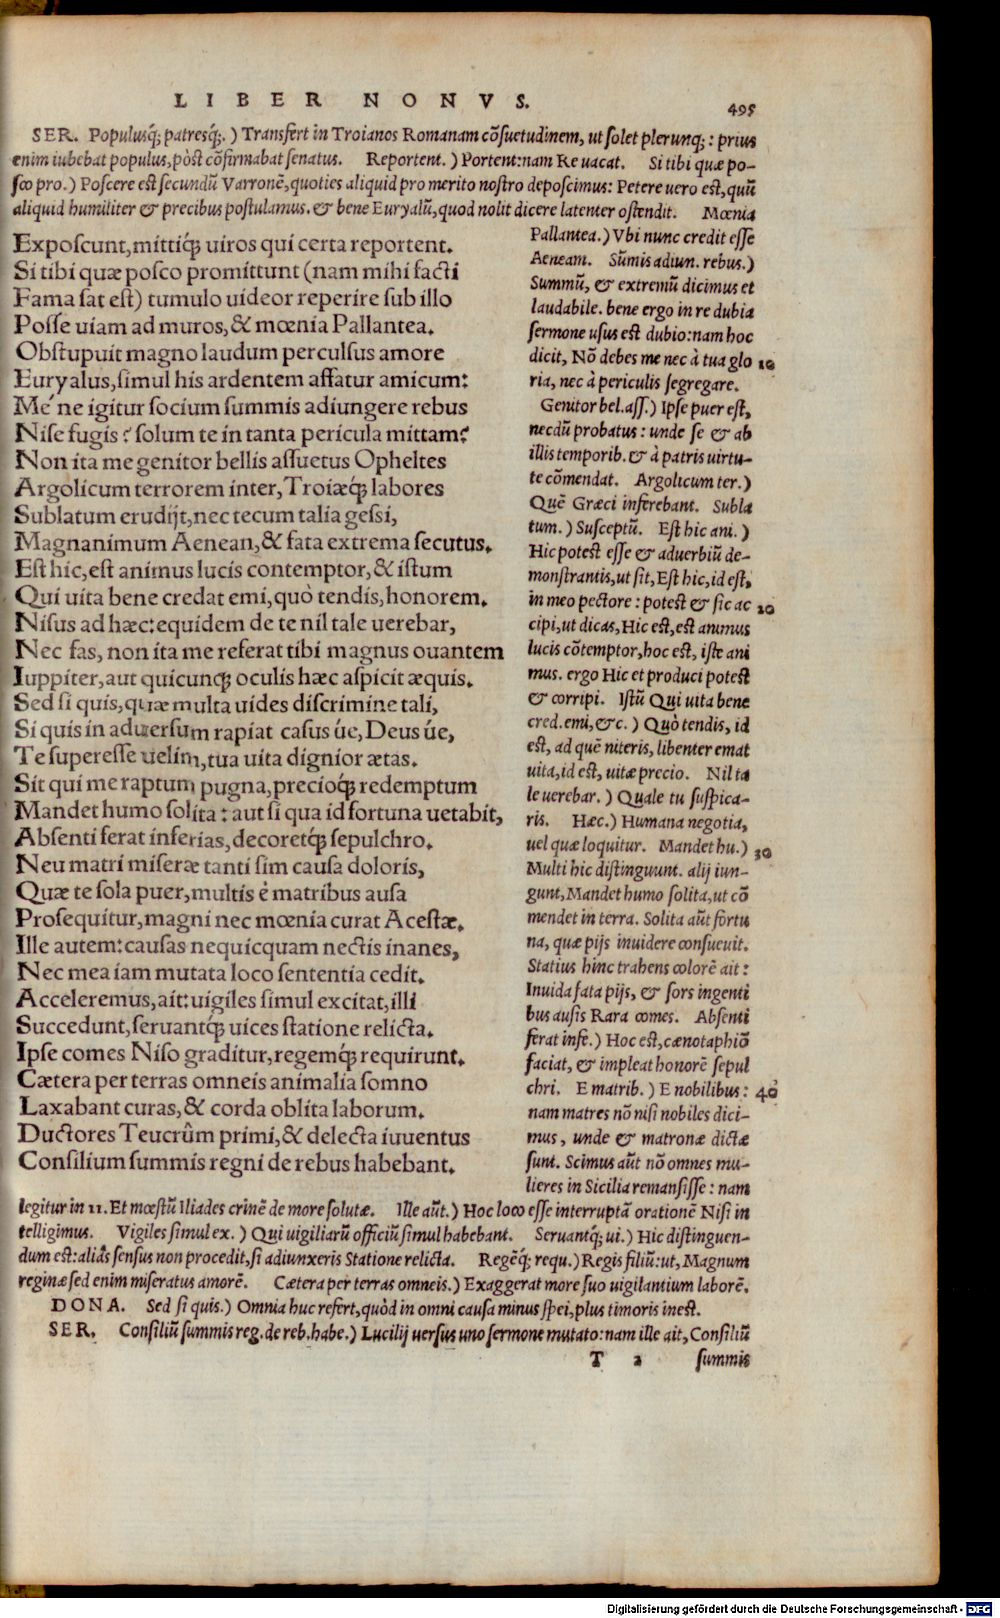 LIBER NONVS. 495
SER. Populusq́; patresq́;. ) Transfert in Troianos Romanam cõsuetudinem, ut solet plerunq; : prius
enim iubebat populus, pòst cõfirmabat senatus. Reportent. ) Portent: nam Re uacat. Si tibi quæ po-
sco pro.) Poscere est secundũ Varronẽ, quoties aliquid pro merito nostro deposcimus: Petere uero est, quũ
aliquid humiliter & precibus postulamus. & bene Euryalũ, quod nolit dicere latenter ostendit. Mœnia
Exposcunt, mittiq́; uiros qui certa reportent.
Si tibi quæ posco promittunt (nam mihi facti
Fama sat est) tumulo uideor reperire sub illo
Posse uiam ad muros, & mœnia Pallantea.
Obstupuit magno laudum perculsus amore
Euryalus, simul his ardentem affatur amicum:
Me´ne igitur socium summis adiungere rebus
Nise fugis? solum te in tanta pericula mittam?
Non ita me genitor bellis assuetus Opheltes
Argolicum terrorem inter, Troiæq́; labores
Sublatum erudijt, nec tecum talia gessi,
Magnanimum Aenean, & fata extrema secutus.
Est hic, est animus lucis contemptor, & istum
Qui uita bene credat emi, quò tendis, honorem.
Nisus ad hæc: equidem de te nil tale uerebar,
Nec fas, non ita me referat tibi magnus ouantem
Iuppiter, aut quicunq; oculis hæc aspicit æquis.
Sed si quis, quæ multa uides discrimine tali,
Si quis in aduersum rapiat casus úe, Deus úe,
Te superesse uelim, tua uita dignior ætas.
Sit qui me raptum pugna, precioq́; redemptum
Mandet humo solita: aut si qua id fortuna uetabit,
Absenti ferat inferias, decoretq́; sepulchro.
Neu matri miseræ tanti sim causa doloris,
Quæ te sola puer, multis è matribus ausa
Prosequitur, magni nec mœnia curat Acestæ.
Ille autem: causas nequicquam nectis inanes,
Nec mea iam mutata loco sententia cedit.
Acceleremus, ait: uigiles simul excitat, illi
Succedunt, seruantq́; uices statione relicta.
Ipse comes Niso graditur, regemq́; requirunt.
Cætera per terras omneis animalia somno
Laxabant curas, & corda oblita laborum.
Ductores Teucrûm primi, & delecta iuuentus
Consilium summis regni de rebus habebant.
Pallantea.) Vbi nunc credit esse
Aeneam. Sũmis adiun. rebus.)
Summũ, & extremũ dicimus et
laudabile. bene ergo in re dubia
sermone usus est dubio: nam hoc
dicit, Nõ debes me nec à tua glo 10
ria, nec à periculis segregare.
Genitor bel. ass.) Ipse puer est,
necdũ probatus: unde se & ab
illis temporib. & à patris uirtu-
te cõmendat. Argolicum ter.)
Quẽ Græci inferebant. Subla
tum.) Susceptũ. Est hic ani. )
Hic potest esse & aduerbiũ de-
monstrantis, ut sit, Est hic, id est,
in meo pectore: potest & sic ac 20
cipi, ut dicas, Hic est, est animus
lucis cõtemptor, hoc est, iste ani
mus. ergo Hic et produci potest
& corripi. Istũ Qui uita bene
cred. emi, &c. ) Quò tendis, id
est, ad quẽ niteris, libenter emat
uita, id est, uitæ precio. Nil ta
le uerebar. ) Quale tu suspica-
ris. Hæc.) Humana negotia,
uel quæ loquitur. Mandet hu.) 30
Multi hic distinguunt. alij iun-
gunt, Mandet humo solita, ut cõ
mendet in terra. Solita aũt fortu
na, quæ pijs inuidere consueuit.
Statius hinc trahens colorẽ ait:
Inuida fata pijs, & sors ingenti
bus ausis Rara comes. Absenti
ferat infe.) Hoc est, cænotaphiõ
faciat, & impleat honorẽ sepul
chri. E matrib. ) E nobilibus: 40
nam matres nõ nisi nobiles dici-
mus, unde & matronæ dictæ
sunt. Scimus aũt nõ omnes mu-
lieres in Sicilia remansisse: nam
legitur in 11. Et mœstũ Iliades crinẽ de more solutæ. Ille aũt.) Hoc loco esse interruptã orationẽ Nisi in
telligimus. Vigiles simul ex. ) Qui uigiliarũ officiũ simul habebant. Seruantq́; ui.) Hic distinguen-
dum est: aliâs sensus non procedit, si adiunxeris Statione relicta. Regẽq́; requ.) Regis filiũ: ut, Magnum
reginæ sed enim miseratus amorẽ. Cætera per terras omneis.) Exaggerat more suo uigilantium laborẽ.
DONA. Sed si quis.) Omnia huc refert, quòd in omni causa minus spei, plus timoris inest.
SER. Consiliũ summis reg. de reb. habe.) Lucilij uersus uno sermone mutato: nam ille ait, Consiliũ
T 2 summis
Digitalisierung gefördert durch die Deutsche Forschungsgemeinschaft - DFG